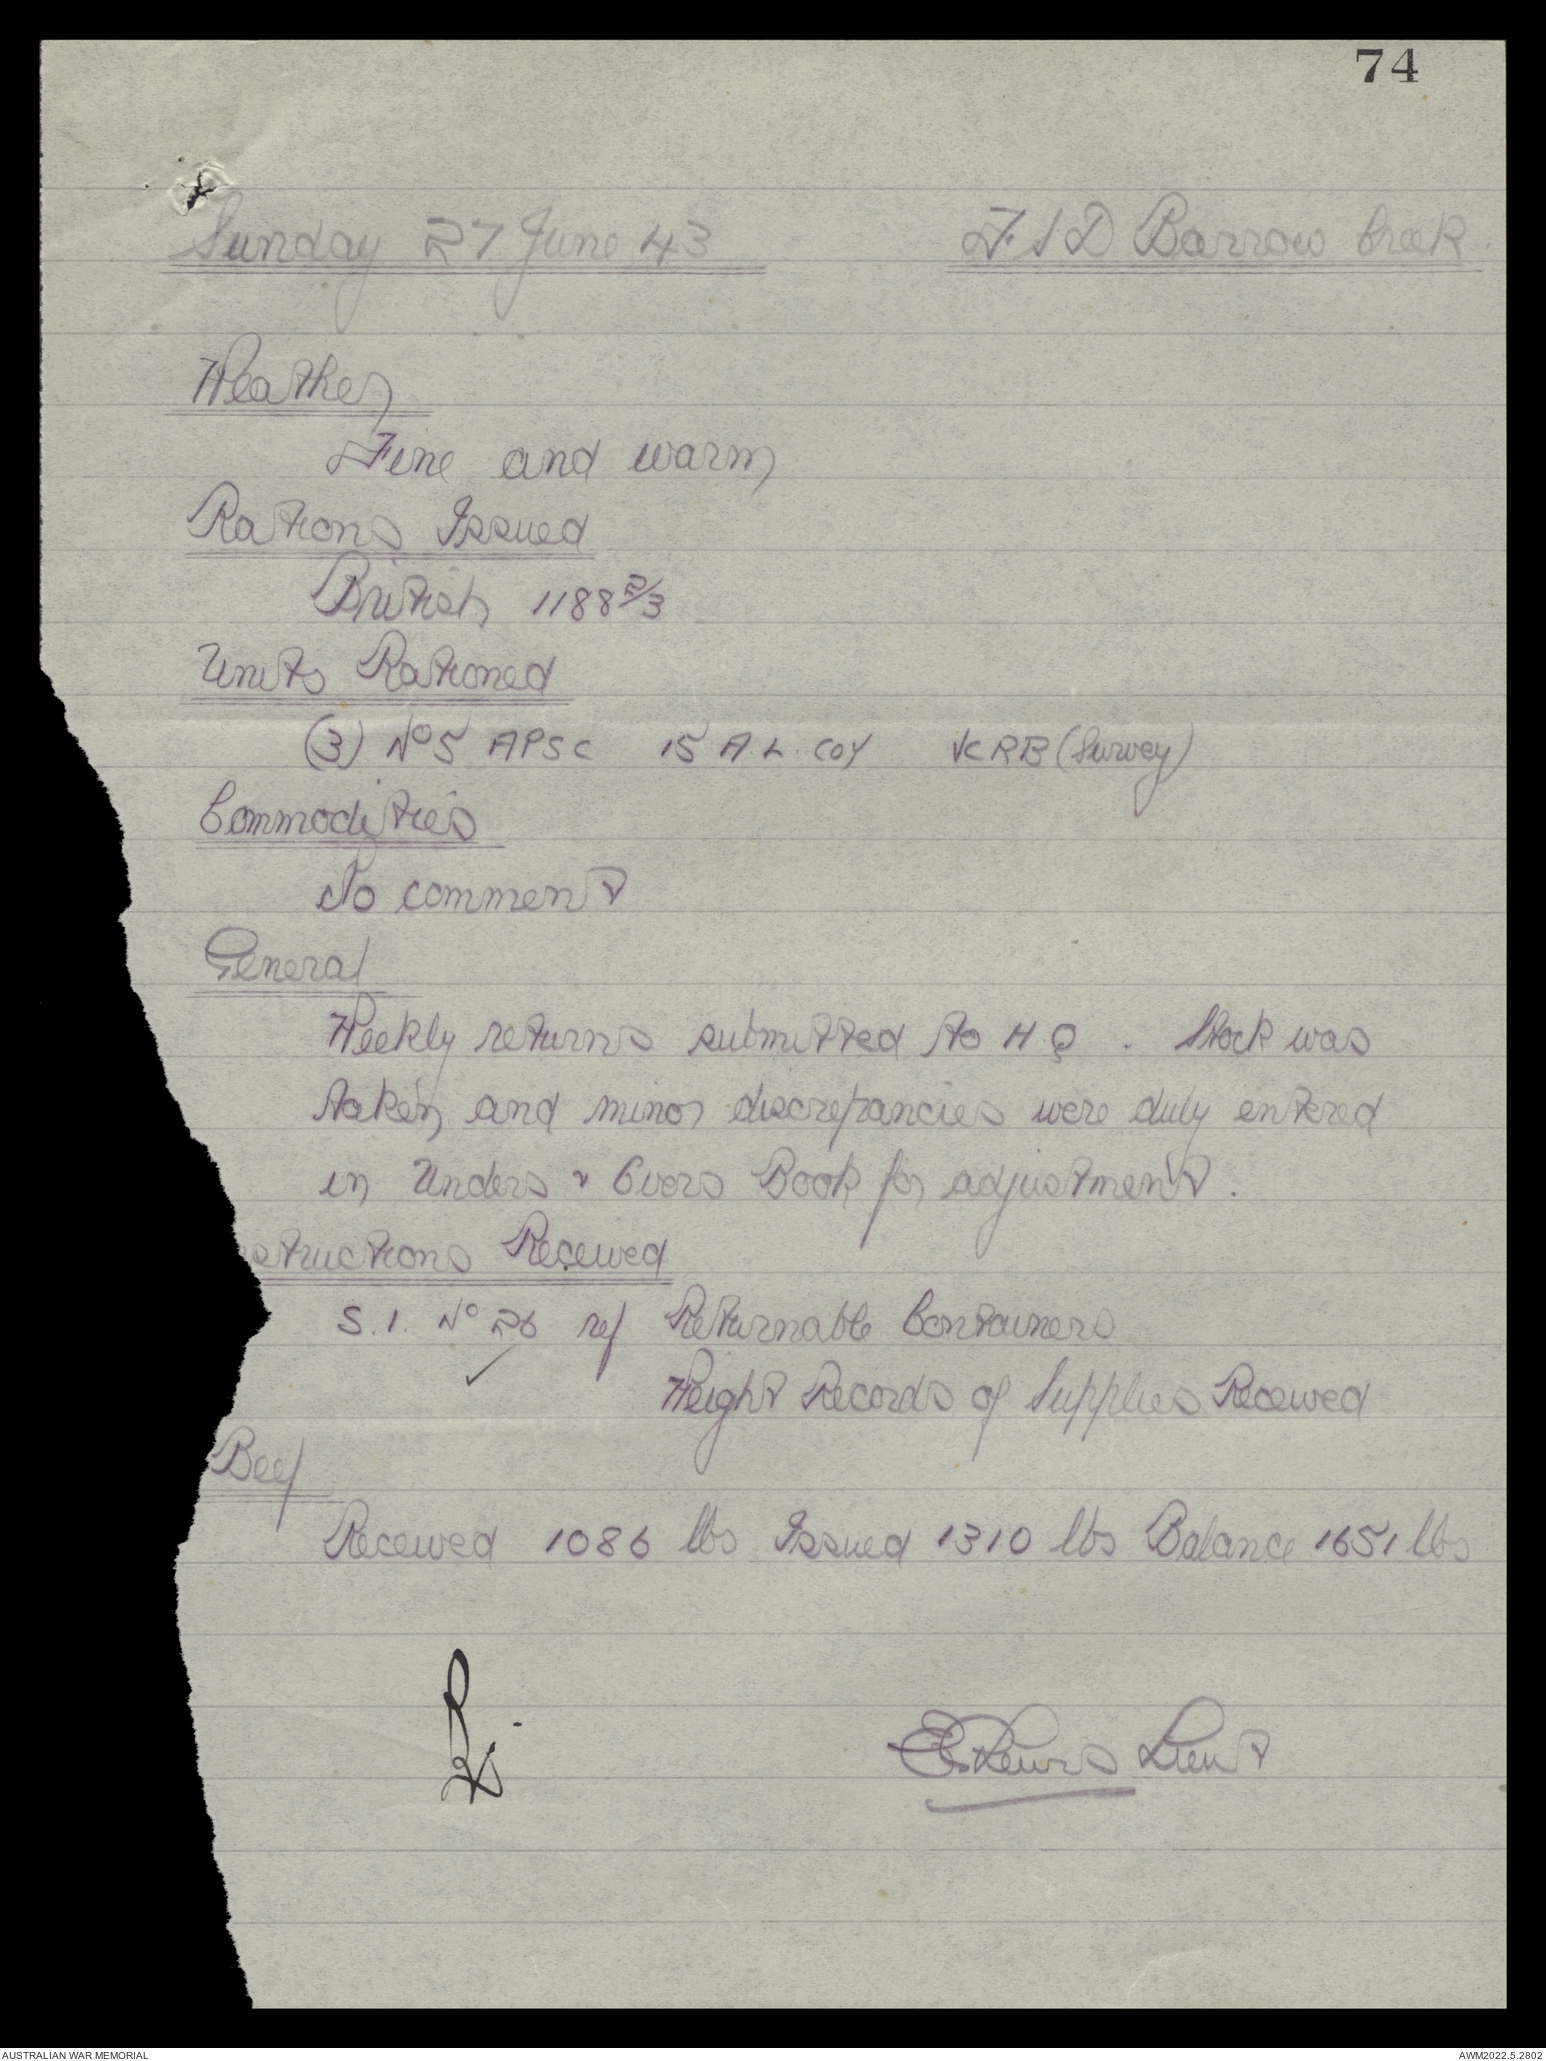 74
Sunday 27 June 43 FSD Barrow Creek.
Weather
Fine and warm
Rations Issued
British 1188 2/3
Units Rationed
(3) No 5 APSC 15 A.L. Coy VCRB (Survey)
Commodities
No comment
General
Weekly returns submitted to HQ. Stock was
taken and minor discrepancies were duly entered
in Unders & Overs Book for adjustment.
structions Received
S.I. No 26 ref Returnable Containers
Weight Records of Supplies Received
Beef
Received 1086 lbs Issued 1310 lbs Balance 1651 lbs
Lewis Lieut
AUSTRALIAN WAR MEMORIAL AWM2022.5.2802